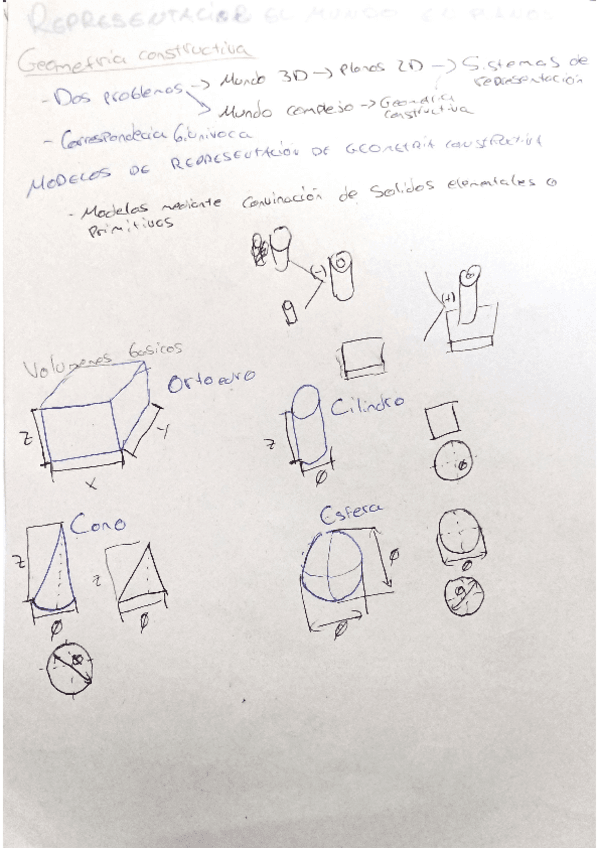 REPRESENTACIÓN EL MUNDO EN PLANOS
Geometría constructiva
- Dos problemas → Mundo 3D → Planos 2D → Sistemas de representación
→ Mundo complejo → Geometría constructiva
- Correspondecia Biunivoca
MODELOS DE REPRESENTACIÓN DE GEOMETRIA CONSTRUCTIVA
- Modelos mediante Convinación de Solidos elementales o
Primitivas
(-)
(+)
Volumenes basicos
Ortoedro
Z
X
Y
Cilindro
Z
Ø
Ø
Cono
Z
Ø
Z
Ø
Ø
Esfera
Ø
Ø
Ø
Ø